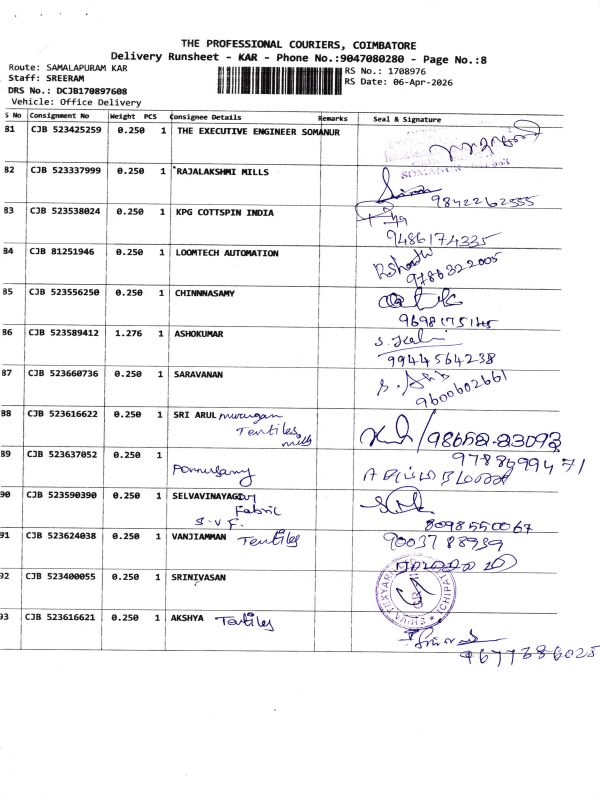 THE PROFESSIONAL COURIERS, COIMBATORE
Delivery Runsheet - KAR - Phone No.:9047080280 - Page No.:8
Route: SAMALAPURAM KAR
RS No.: 1708976
Staff: SREERAM
RS Date: 06-Apr-2026
DRS No.: DCJB170897608
Vehicle: Office Delivery
S No Consignment No Weight PCS Consignee Details Remarks Seal & Signature
81 CJB 523425259 0.250 1 THE EXECUTIVE ENGINEER SOMANUR
82 CJB 523337999 0.250 1 RAJALAKSHMI MILLS
9842262555
83 CJB 523538024 0.250 1 KPG COTTSPIN INDIA
9486174335
84 CJB 81251946 0.250 1 LOOMTECH AUTOMATION
9786322005
85 CJB 523556250 0.250 1 CHINNNASAMY
86 CJB 523589412 1.276 1 ASHOKUMAR
9944564238
87 CJB 523660736 0.250 1 SARAVANAN
9600602661
88 CJB 523616622 0.250 1 SRI ARUL murugan
Textiles
mills
89 CJB 523637052 0.250 1
Ponnusamy
90 CJB 523590390 0.250 1 SELVAVINAYAGA
Fabric
S.V.F.
8098550067
91 CJB 523624038 0.250 1 VANJIAMMAN Textiles
9003788939
92 CJB 523400055 0.250 1 SRINIVASAN
93 CJB 523616621 0.250 1 AKSHYA Textiles
9677386025